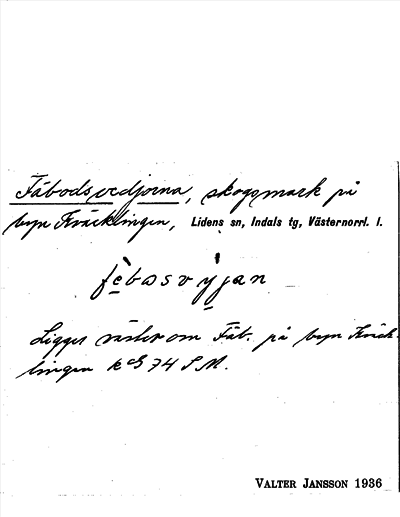 Fäbodsvedjorna, skogsmark på
byn Kväcklingen, Lidens sn, Indals tg, Västernorrl. l.
fèbasvyjan
Ligger väster om Fäb. på byn Kväck-
lingen
VALTER JANSSON 1936